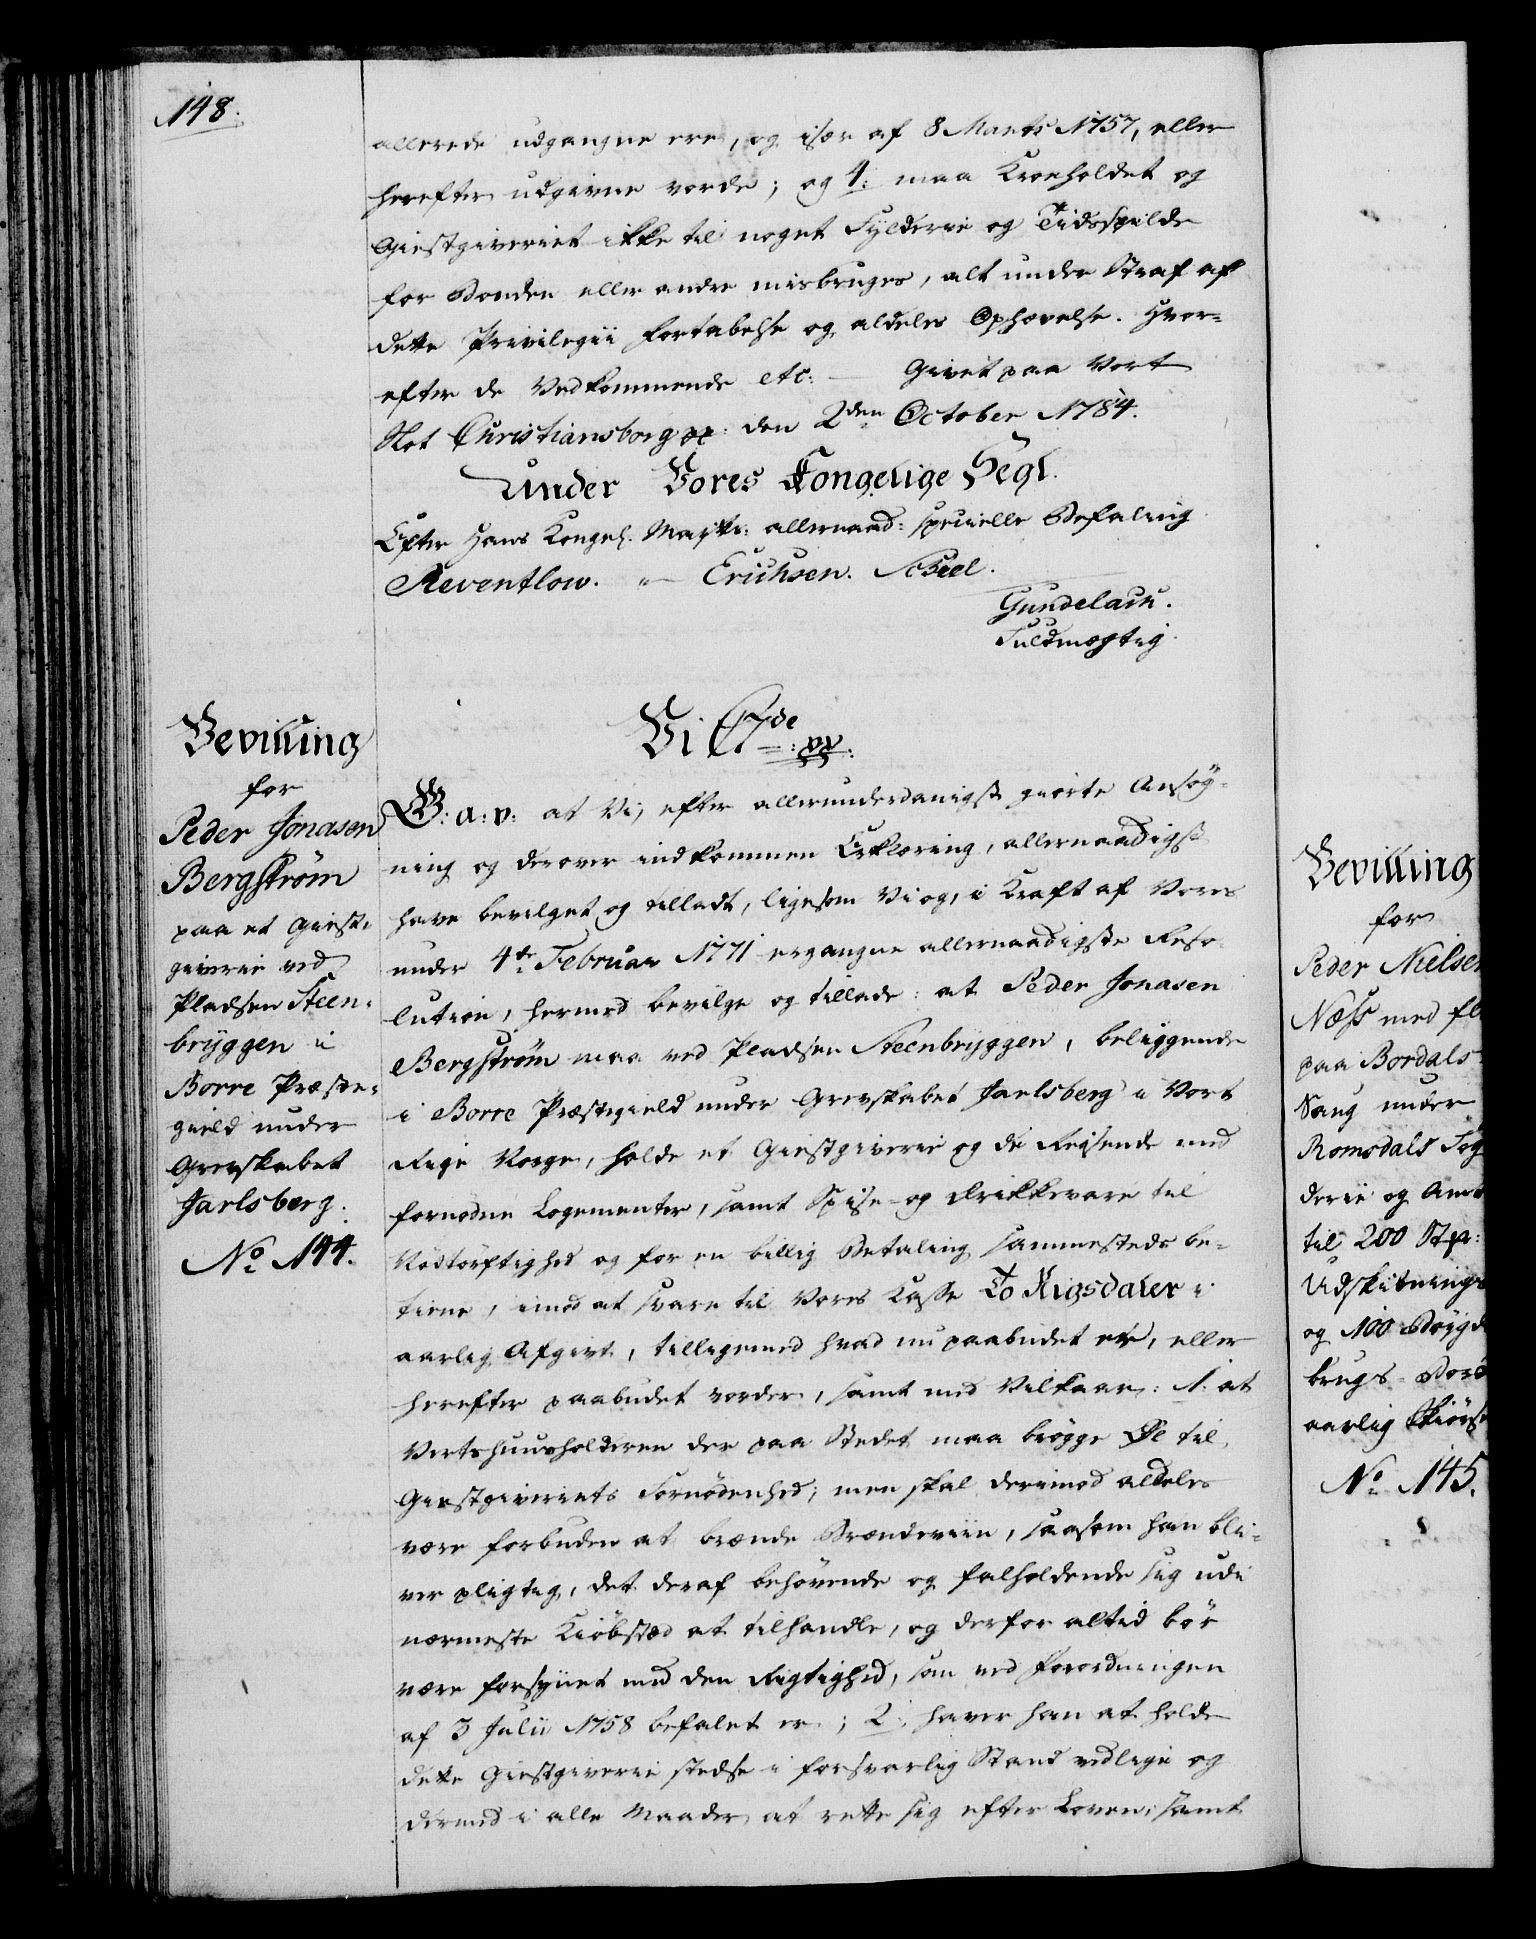 148.
allerede udgangne ere, og især af 8 Marts 1757, eller
herefter udgivne vorde; og 4: maa Kroeholdet og
Giestgiveriet ikke til noget Fylderie og Tidsspilde
for Bonden eller andre misbruges, alt under Straf af
dette Privilegii Fortabelse og aldeles Ophævelse. Hvor-
efter de Vedkommende etc: — Givet paa Vort
Slot Christiansborg pp: den 2den October 1784.
Under Vores Kongelige Segl.
Efter Hans Kongel. Majts: allernaad: specielle Befaling
Reventlow. " Erichsen. Scheel.
Gundelach.
Fuldmægtig.
Bevilling
for
Peder Jonasen
Bergstrøm
paa et Giest-
giverie ved
Pladsen Steen-
bryggen i
Borre Præste-
gield under
Grevskabet
Jarlsberg.
No 144.
Vi C 7de pp:
G: a: v: at Vi, efter allerunderdanigst giorte Ansøg-
ning og derover indkommen Erklæring, allernaadigst
have bevilget og tilladt, ligesom Vi og, i Kraft af Vores
under 4de Februar 1771 ergangne allernaadigste Reso-
lution, hermed bevilge og tillade: at Peder Jonasen
Bergstrøm maa ved Pladsen Steenbryggen, beliggende
i Borre Præstegield under Grevskabet Jarlsberg i Vort
Rige Norge, holde et Giestgiverie og de Reisende med
fornødne Logementer, samt Spise- og Drikkevare til
Nødtørftighed og for en billig Betaling sammesteds be-
tiene, imod at svare til Vores Kasse To Rigsdaler i
aarlig Afgivt, tilligemed hvad nu paabudet er, eller
herefter paabudet vorder, samt med Vilkaar: 1. at
Vertshuusholderen der paa Stedet maa brygge Øl til
Giestgiveriets Fornødenhed; men skal derimod aldeles
være forbuden at brænde Brændeviin, saasom han bli-
ver pligtig, det deraf behøvende og falholdende sig udi
nærmeste Kiøbstæd at tilhandle, og derfor altid bør
være forsynet med den Rigtighed, som ved Forordningen
af 3 Julii 1758 befalet er; 2. haver han at holde
dette Giestgiverie stedse i forsvarlig Stand vedlige og
dermed i alle Maader at rette sig efter Loven, samt
Bevilling
for
Peder Nielsen
Næss med fl
paa Bordals
Saug under
Romsdals Fog
derie og Amt
til 200 St
Udskibnings
og 100 Bøygde
brugs- Bord
aarlig Skiørs
No 145.